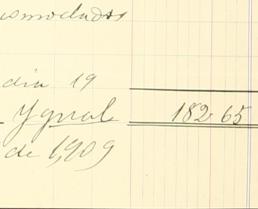 esmochados
dia 19
Ygual 182 65
de 1,909